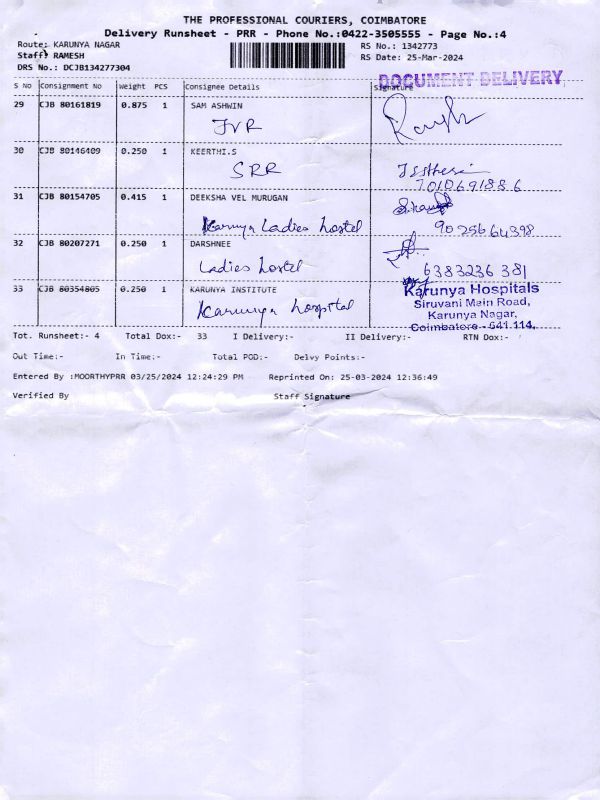 THE PROFESSIONAL COURIERS, COIMBATORE
Delivery Runsheet - PRR - Phone No.:0422-3505555 - Page No.:4
Route: KARUNYA NAGAR
RS No.: 1342773
Staff: RAMESH
RS Date: 25-Mar-2024
DRS No.: DCJB134277304
DOCUMENT DELIVERY
S No Consignment No Weight PCS Consignee Details Signature
29 CJB 80161819 0.875 1 SAM ASHWIN
JVR
30 CJB 80146409 0.250 1 KEERTHI.S
SRR
7010691886
31 CJB 80154705 0.415 1 DEEKSHA VEL MURUGAN
Karunya Ladies hostel 9025664398
32 CJB 80207271 0.250 1 DARSHNEE
Ladies hostel 6383236 381
33 CJB 80354805 0.250 1 KARUNYA INSTITUTE
Karunya hospital
Karunya Hospitals
Siruvani Main Road,
Karunya Nagar,
Coimbatore - 641 114.
Tot. Runsheet:- 4 Total Dox:- 33 I Delivery:- II Delivery:- RTN Dox:-
Out Time:- In Time:- Total POD:- Delvy Points:-
Entered By :MOORTHYPRR 03/25/2024 12:24:29 PM Reprinted On: 25-03-2024 12:36:49
Verified By Staff Signature